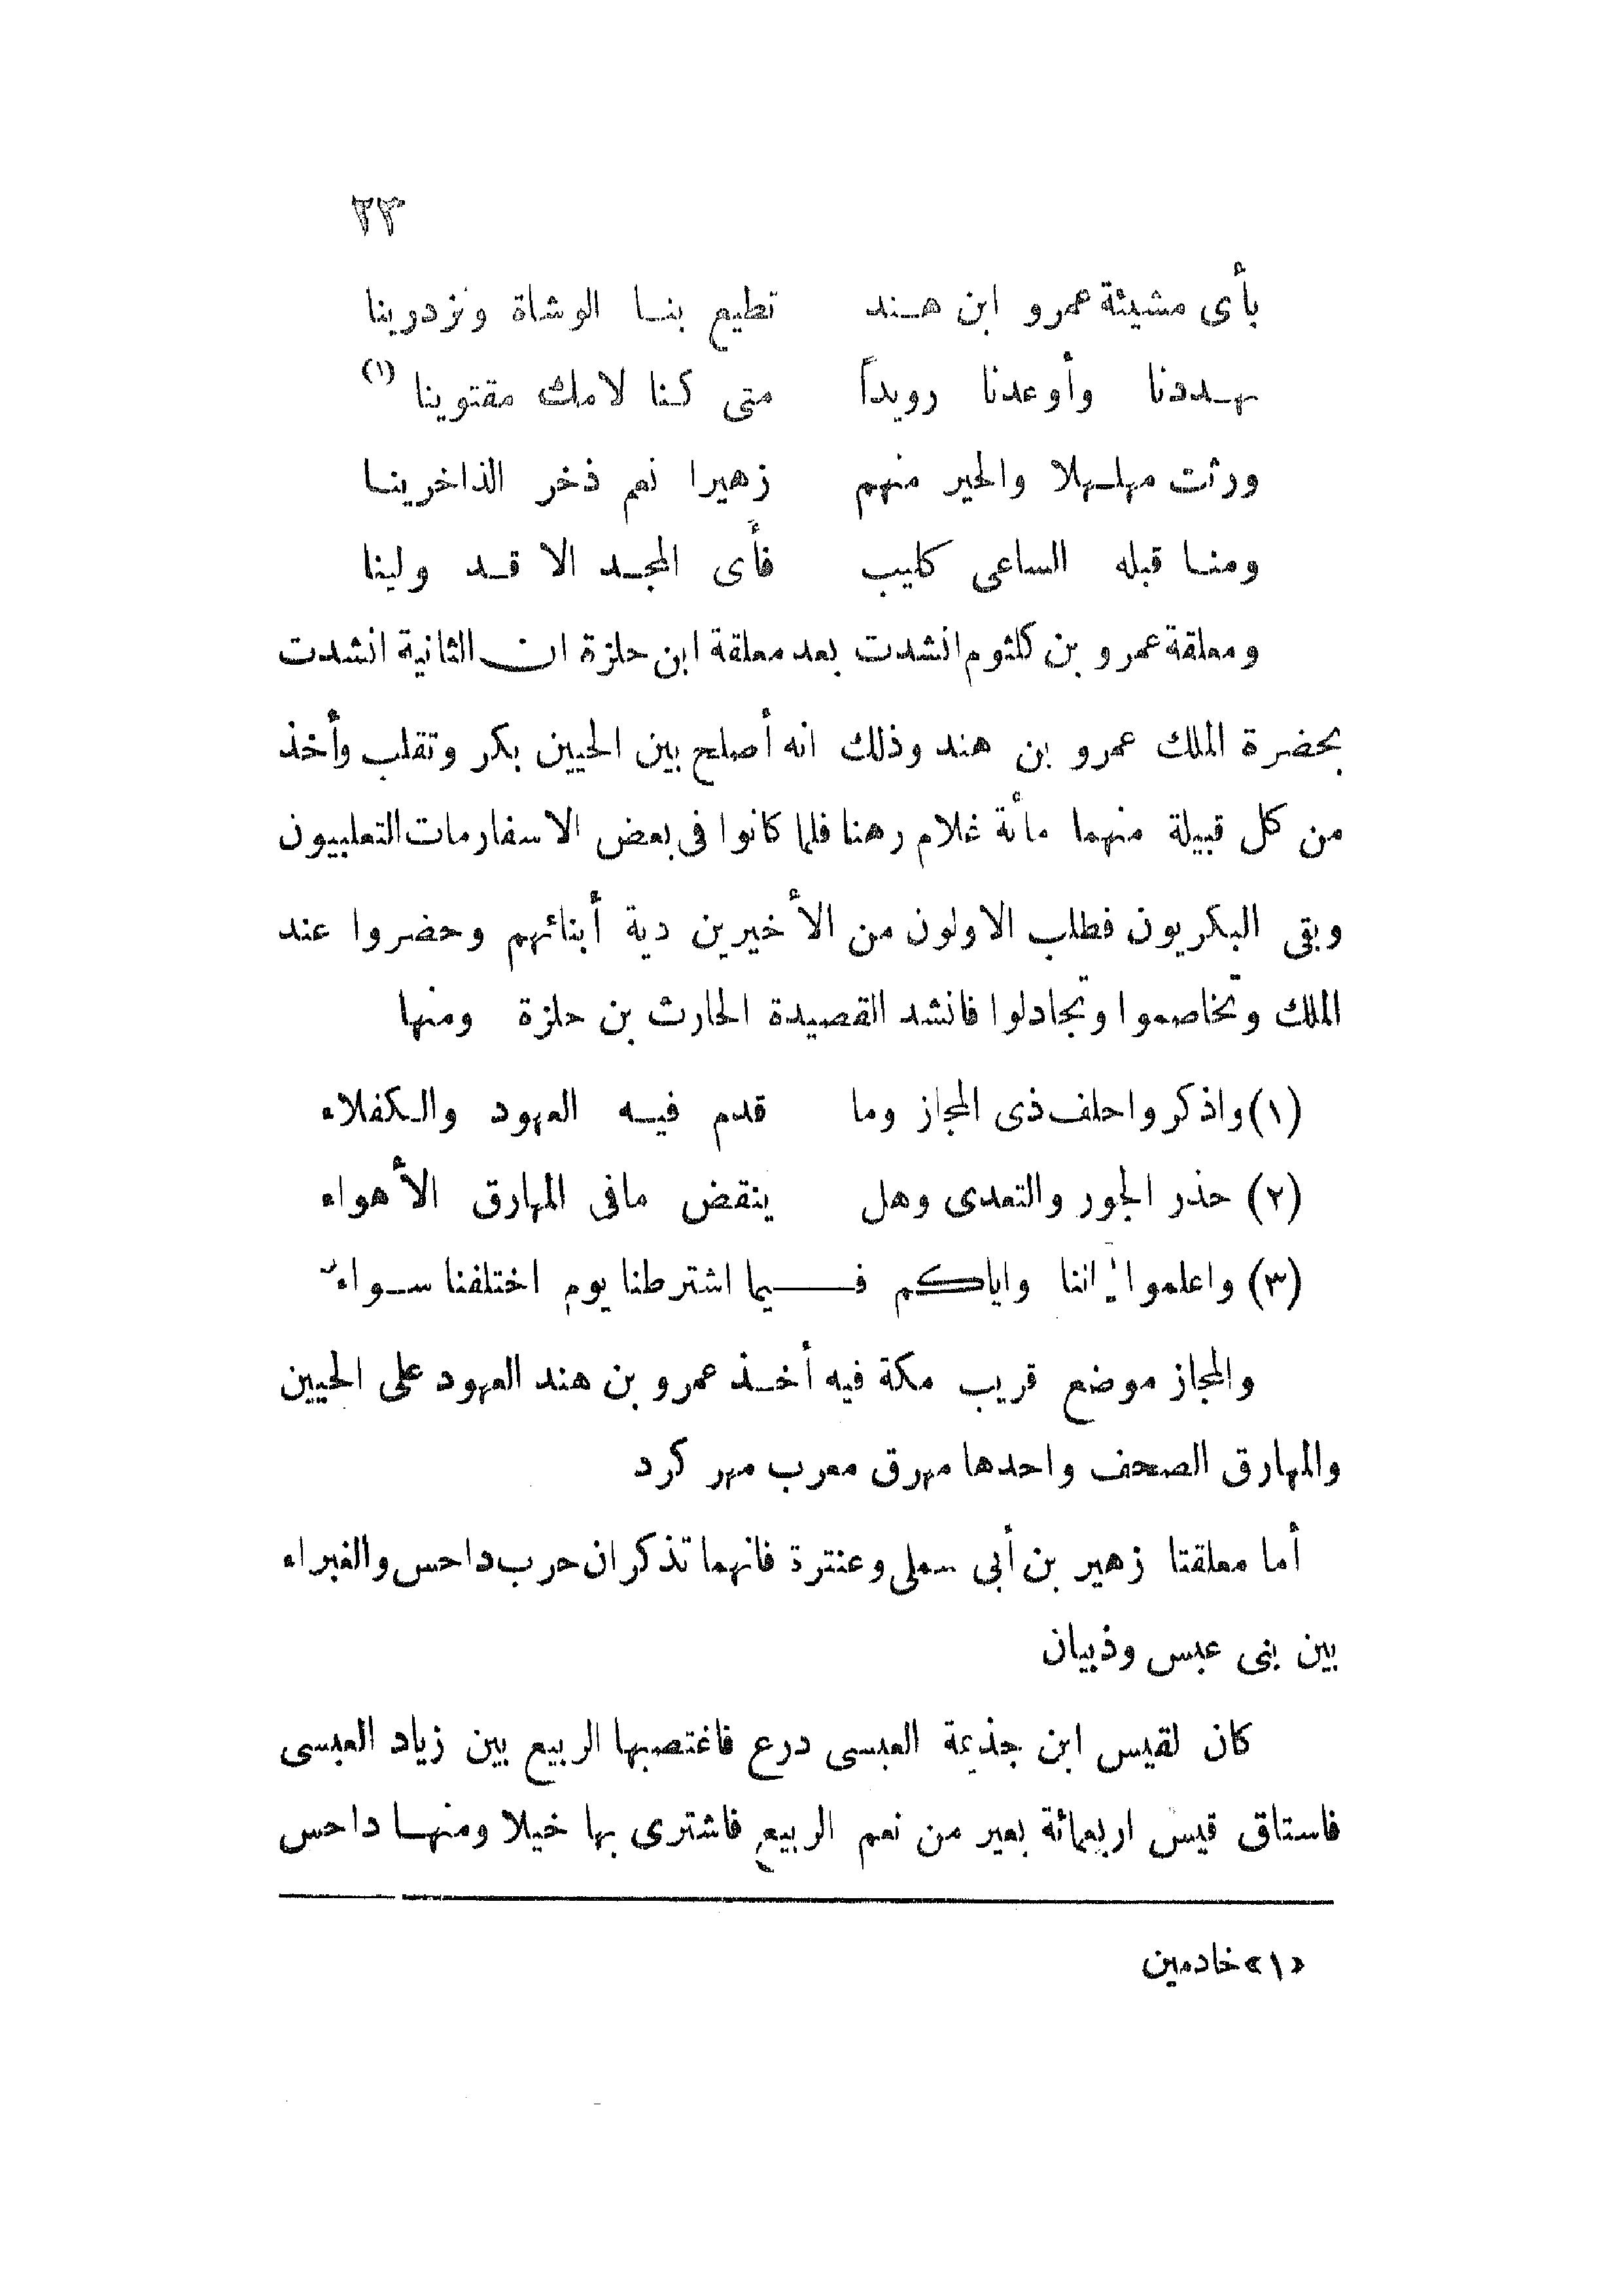 ٢٣
بأى مشيئة عمرو ابن هـند تطيع بنـا الوشاة وتزدرينا
تهـددنا وأوعدنا رويداً متى كنا لامك مقتوينا (١)
ورثت مهلـهلا والخير منهم زهيرا نعم ذخر الذاخرينـا
ومنـا قبله الساعى كليب فأى المجـد الا قـد ولينا
ومعلقة عمرو بن كلثوم انشدت بعد معلقة ابن حلزة ان الثانية انشدت
بحضرة الملك عمرو بن هند وذلك انه أصلح بين الحيين بكر وتقلب وأخذ
من كل قبيلة منهما مأة غلام رهنا فلما كانوا فى بعض الاسفار مات التعلبيون
وبقى البكريون فطلب الاولون من الأخيرين دية أبنائهم وحضروا عند
الملك وتخاصموا وتجادلوا فانشد القصيدة الحارث بن حلزة ومنها
(١) واذكروا حلف ذى المجاز وما قدم فيـه العهود والكفلاء
(٢) حذر الجور والتعدى وهل ينقض مافى المهارق الأهواء
(٣) واعلموا اننا واياكم فـيما اشترطنا يوم اختلفنا سـواء
والمجاز موضع قريب مكة فيه أخـذ عمرو بن هند العهود على الحيين
والمهارق الصحف واحدها مهرق معرب مهر كرد
أما معلقتا زهير بن أبى سملى وعنترة فانهما تذكران حرب داحس والغبراء
بين بنى عبس وذبيان
كان لقيس ابن جذيمة العبسى درع فاغتصبها الربيع بين زياد العبسى
فاستاق قيس اربعمائة بعير من نعم الربيع فاشترى بها خيلا ومنهـا داحس
«١» خادمين